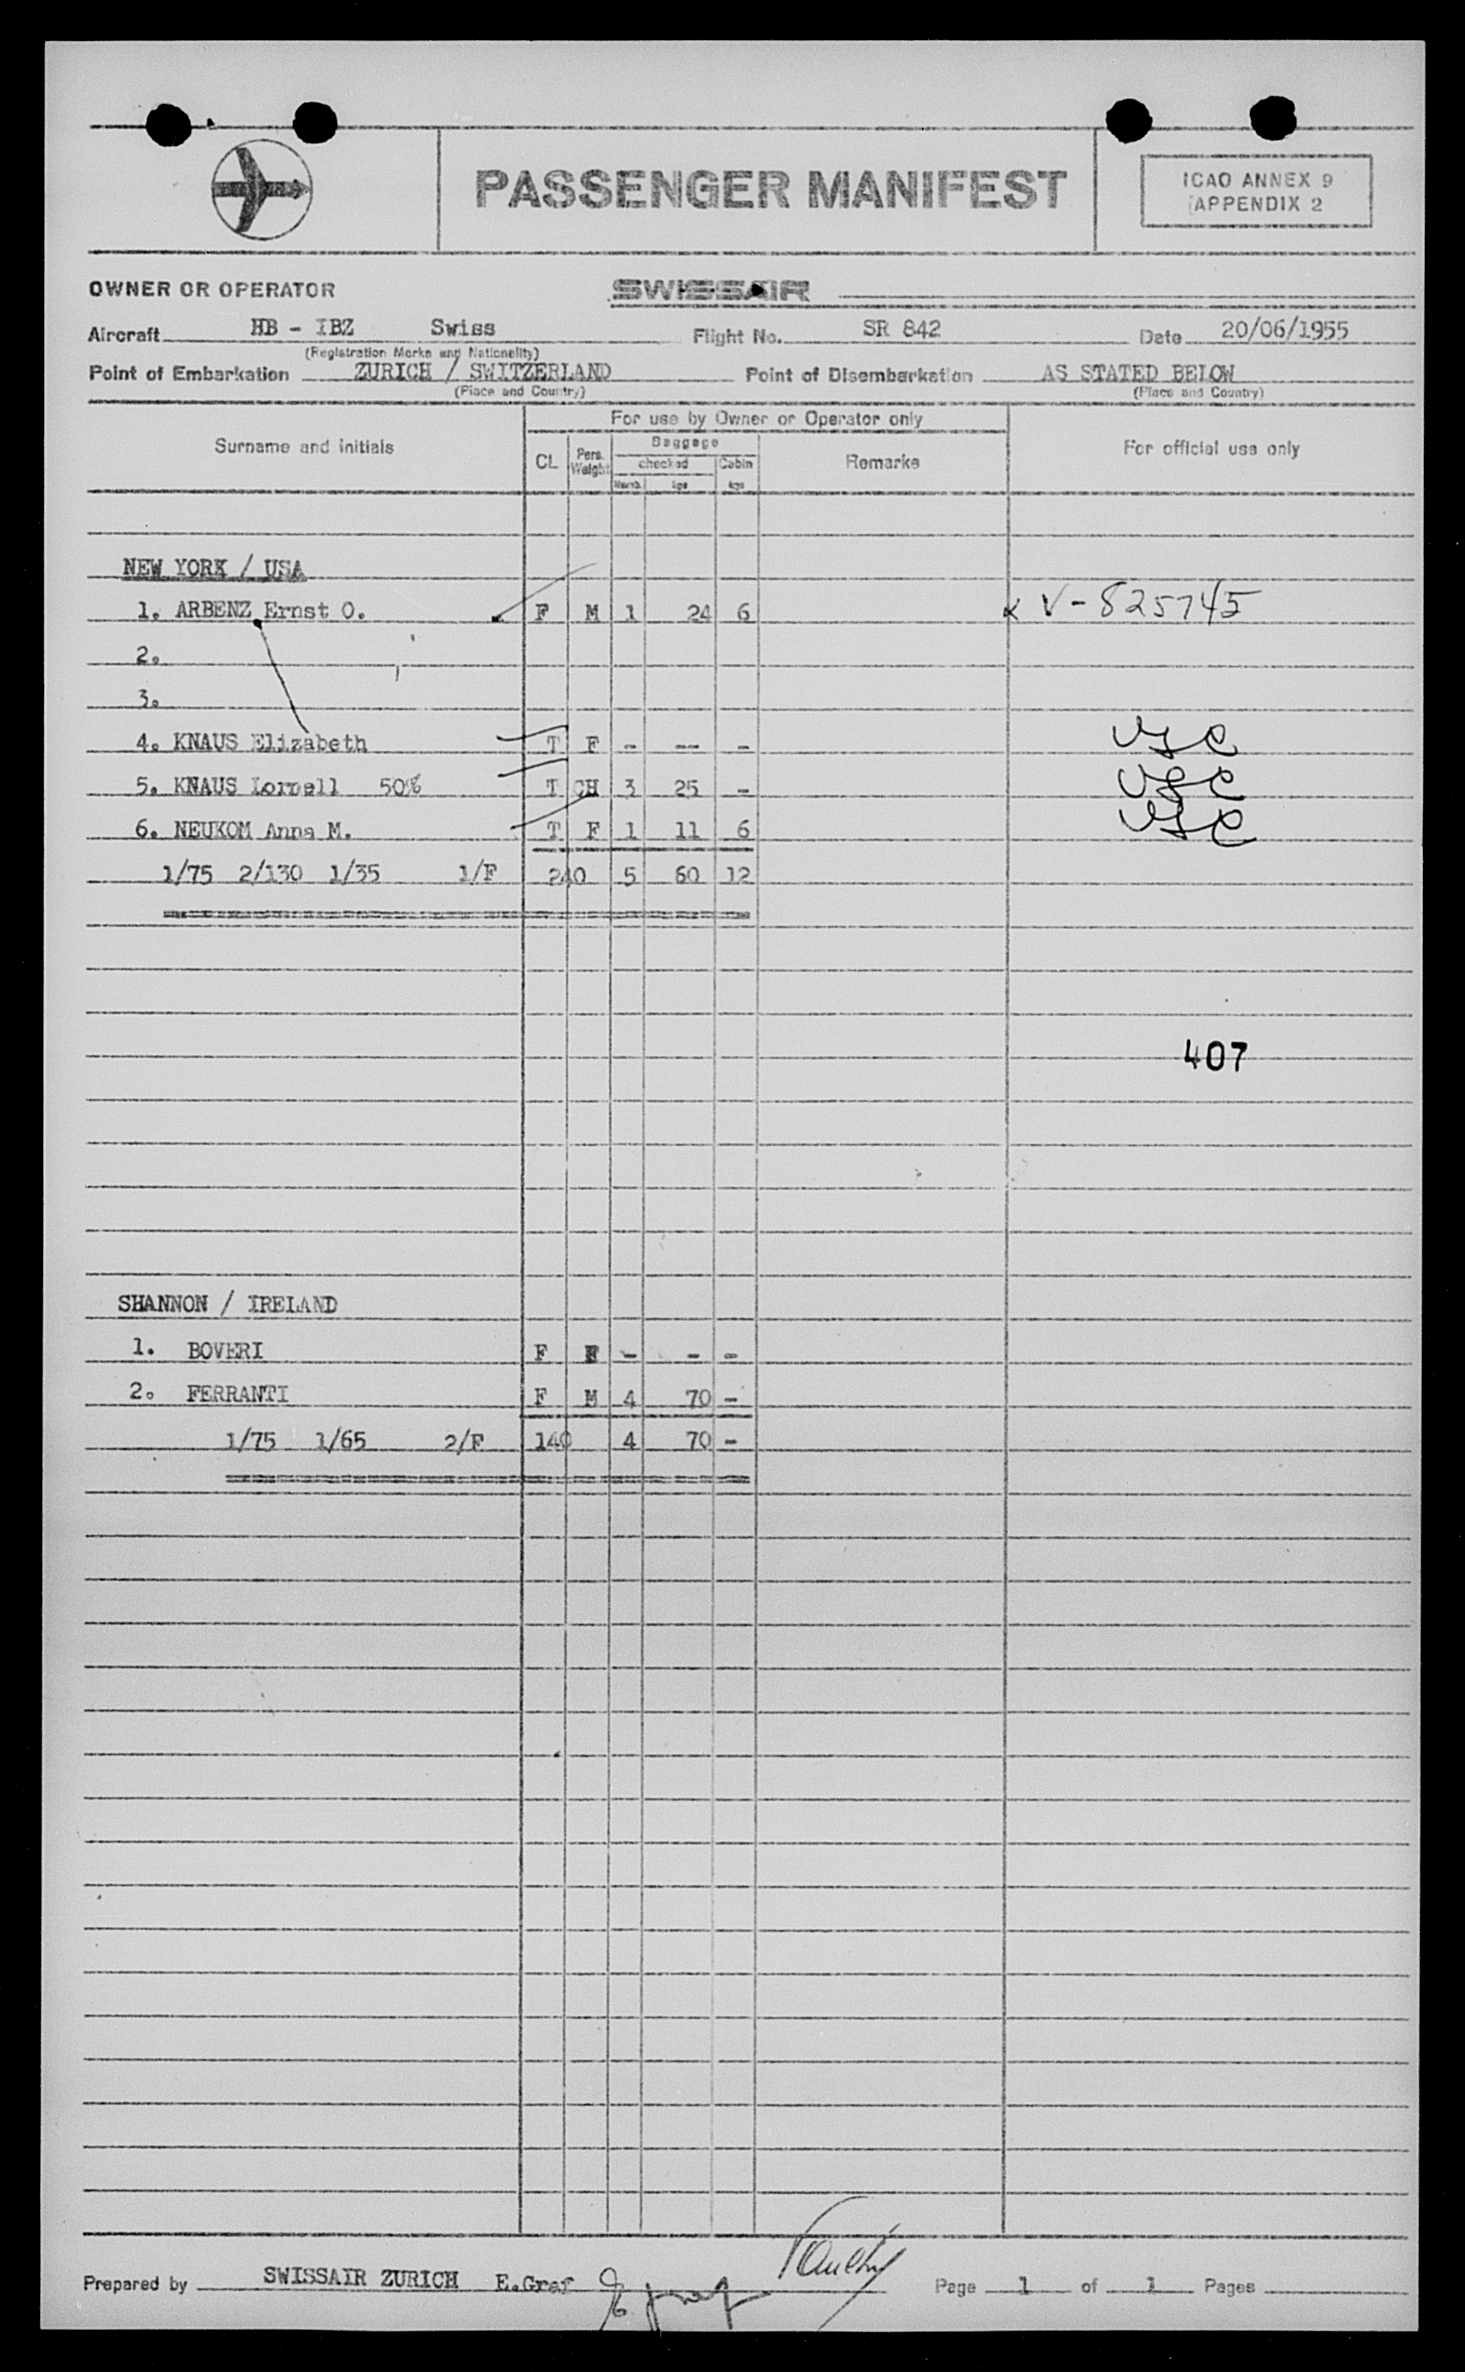 PASSENGER MANIFEST
ICAO ANNEX 9
APPENDIX 2
OWNER OR OPERATOR SWISSAIR
Aircraft HB - IBZ Swiss Flight No. SR 842 Date 20/06/1955
(Registration Marks and Nationality)
Point of Embarkation ZURICH / SWITZERLAND Point of Disembarkation AS STATED BELOW
(Place and Country) (Place and Country)
Surname and initials For use by Owner or Operator only For official use only
CL Pers. Weight Baggage Remarks
checked Cabin
Numb. kgs kgs
NEW YORK / USA
1. ARBENZ Ernst O. F M 1 24 6 V-825745
2.
3.
4. KNAUS Elizabeth T F - -- -
5. KNAUS 50% T CH 3 25 -
6. NEUKOM Anna M. T F 1 11 6
1/75 2/130 1/35 1/F 240 5 60 12
407
SHANNON / IRELAND
1. BOVERI F F - - -
2. FERRANTI F M 4 70 -
1/75 1/65 2/F 140 4 70 -
Prepared by SWISSAIR ZURICH E.Graf Page 1 of 1 Pages